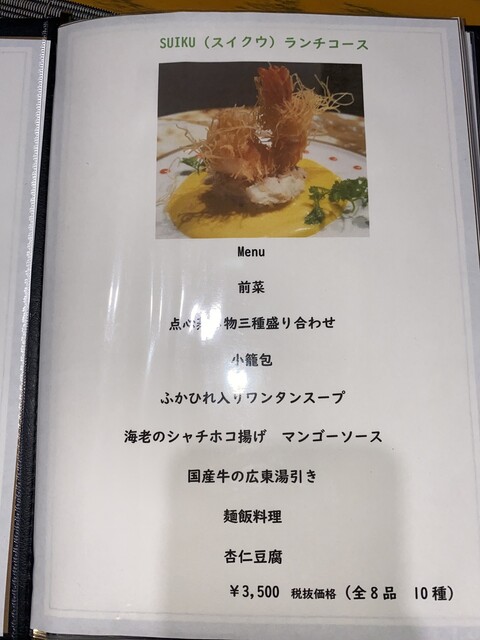 SUIKU（スイクウ）ランチコース
Menu
前菜
点心 物三種盛り合わせ
小籠包
ふかひれ入りワンタンスープ
海老のシャチホコ揚げ　マンゴーソース
国産牛の広東湯引き
麺飯料理
杏仁豆腐
￥3,500 税抜価格（全8品　10種）